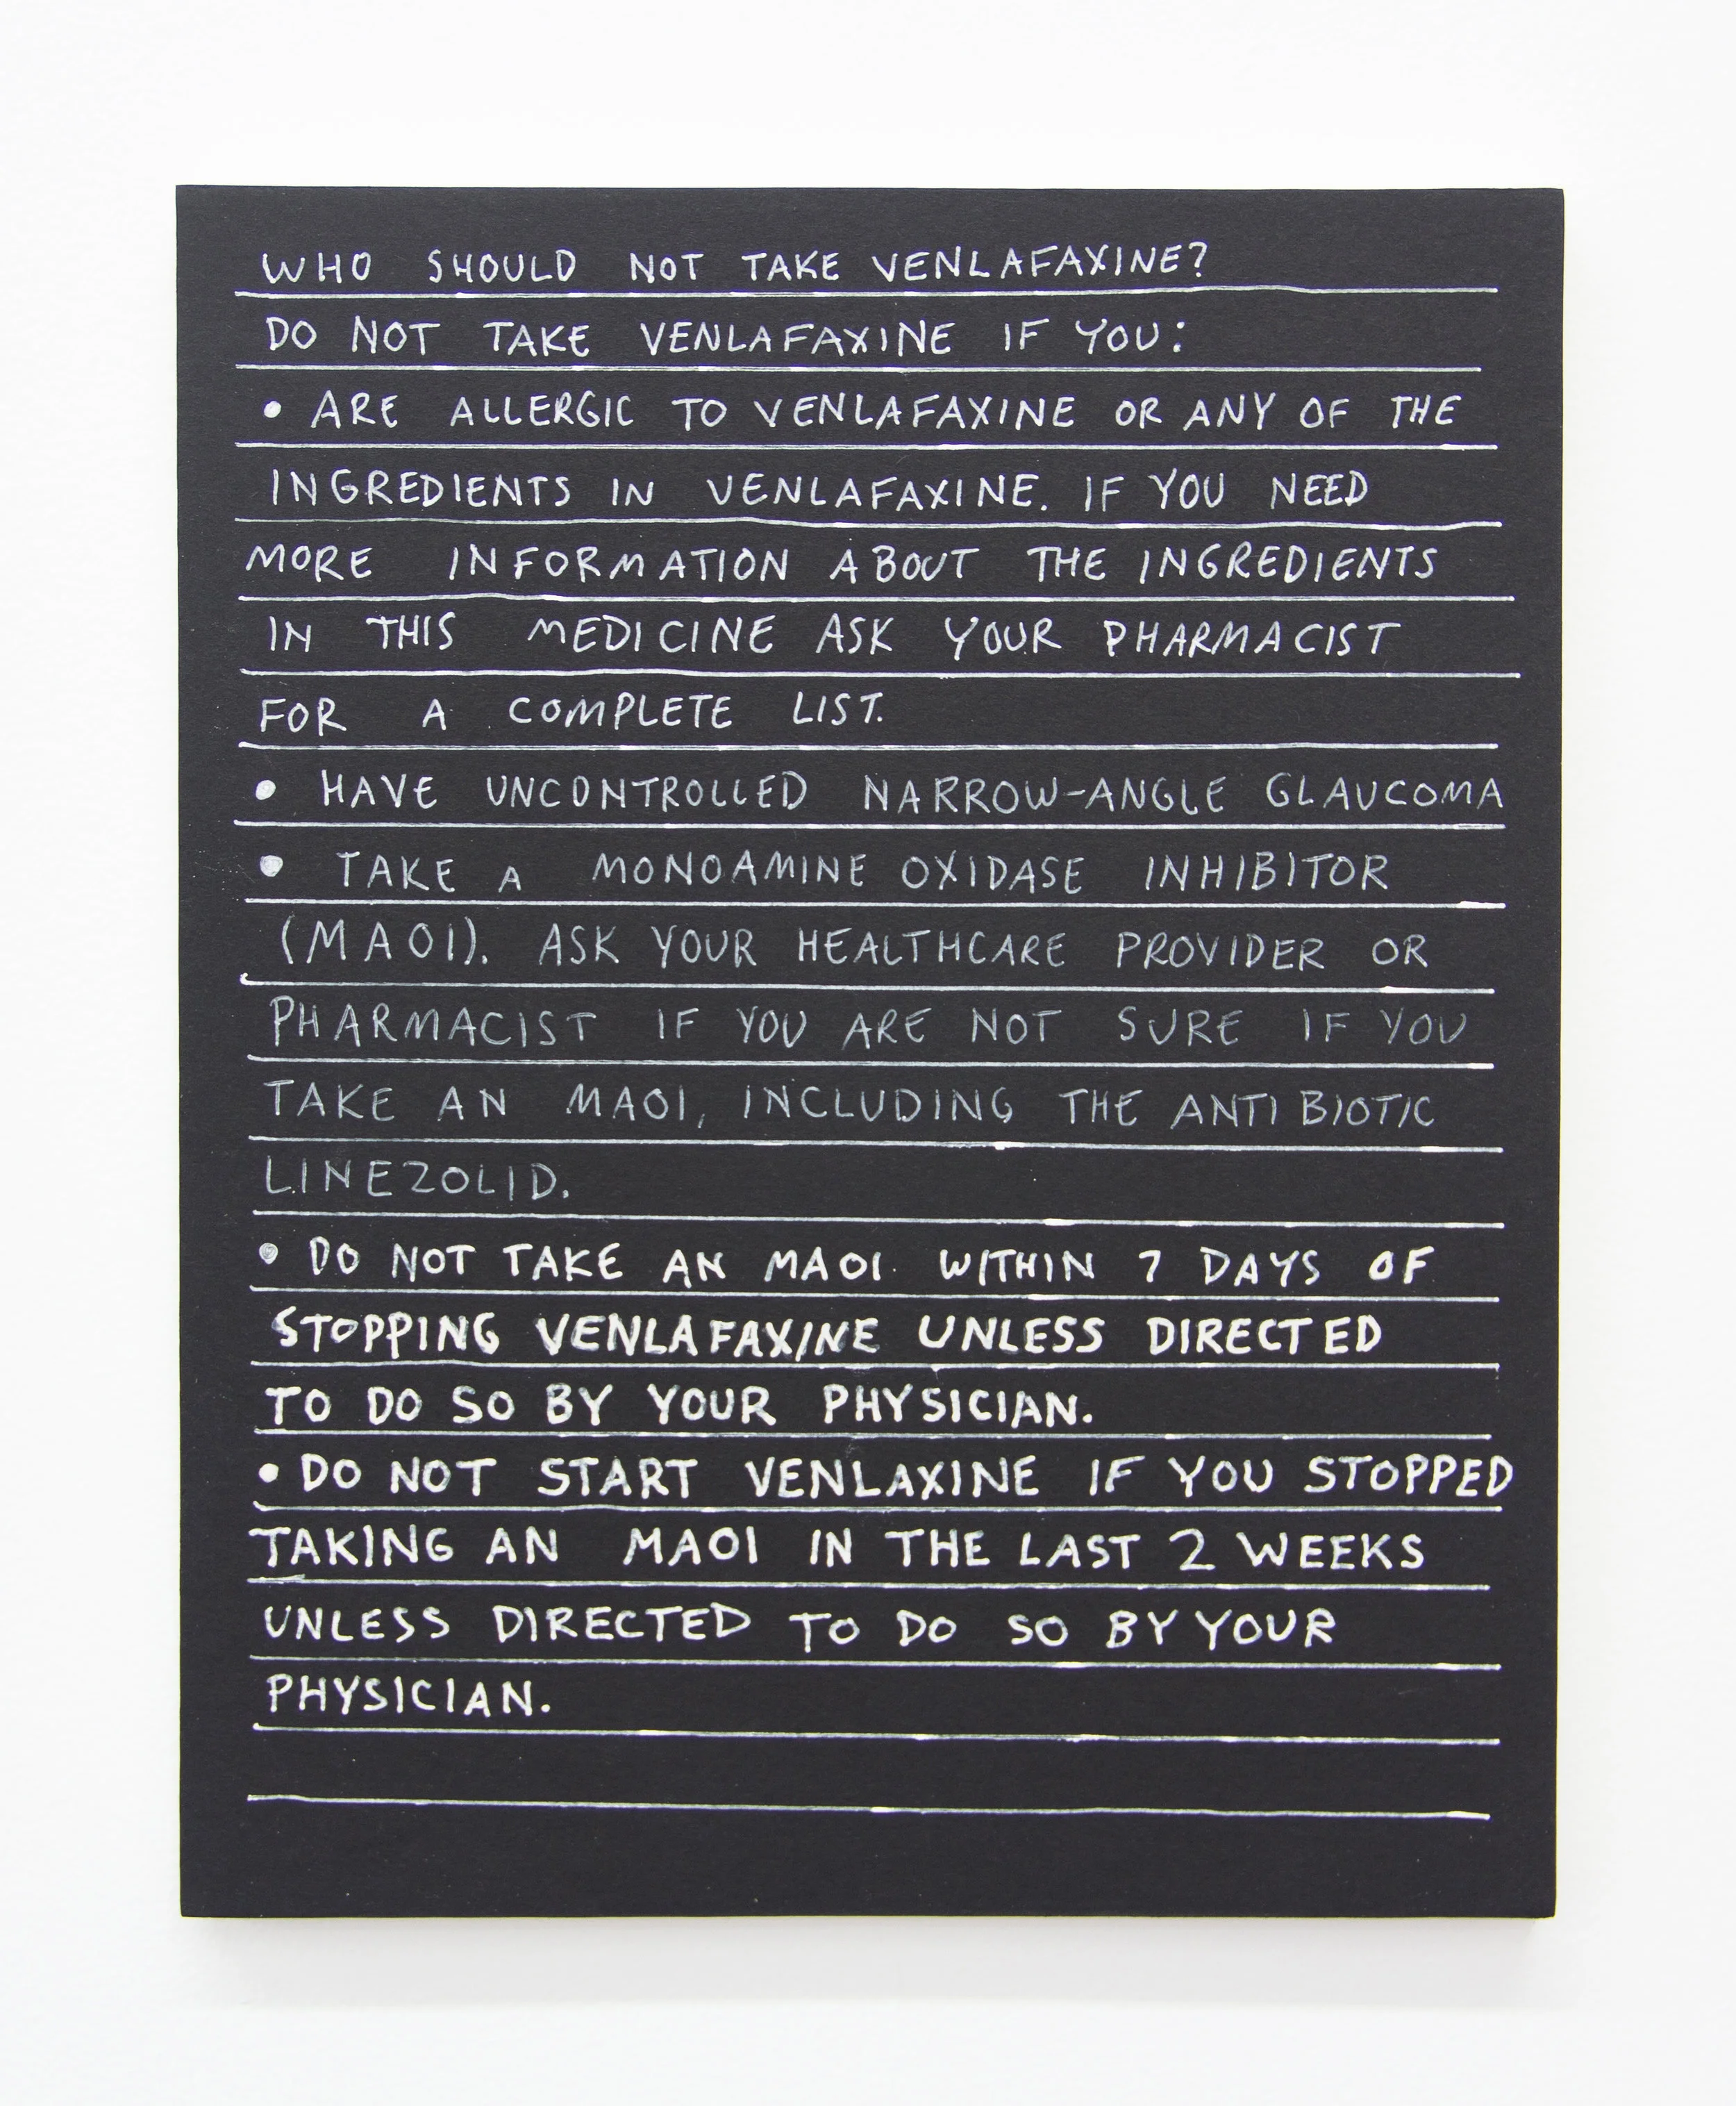 WHO SHOULD NOT TAKE VENLAFAXINE?
DO NOT TAKE VENLAFAXINE IF YOU:
• ARE ALLERGIC TO VENLAFAXINE OR ANY OF THE
INGREDIENTS IN VENLAFAXINE. IF YOU NEED
MORE INFORMATION ABOUT THE INGREDIENTS
IN THIS MEDICINE ASK YOUR PHARMACIST
FOR A COMPLETE LIST.
• HAVE UNCONTROLLED NARROW-ANGLE GLAUCOMA
• TAKE A MONOAMINE OXIDASE INHIBITOR
(MAOI). ASK YOUR HEALTHCARE PROVIDER OR
PHARMACIST IF YOU ARE NOT SURE IF YOU
TAKE AN MAOI, INCLUDING THE ANTIBIOTIC
LINEZOLID.
• DO NOT TAKE AN MAOI WITHIN 7 DAYS OF
STOPPING VENLAFAXINE UNLESS DIRECTED
TO DO SO BY YOUR PHYSICIAN.
• DO NOT START VENLAXINE IF YOU STOPPED
TAKING AN MAOI IN THE LAST 2 WEEKS
UNLESS DIRECTED TO DO SO BY YOUR
PHYSICIAN.